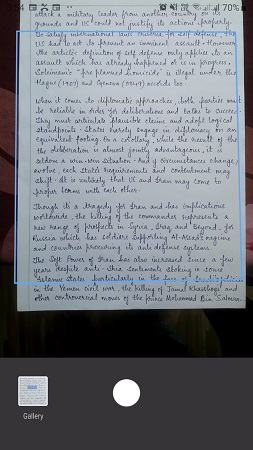 70%
attack a military leader from another country on its
grounds and US could not justify its action properly.
To satisfy international law criteria for self defense, the
US had to act to prevent an imminent assault. However
the articles definition of self defense only applies to an
assault which has already happened or is in progress.
Soleimani's "pre planned homicide" is illegal under the
Hague (1907) and Geneva (1949) accords too.
When it comes to diplomatic approaches, both parties must
be reliable in order for deliberations and talks to succeed.
They must articulate plausible claims and adopt logical
standpoints. States rarely engage in diplomacy on an
equivalent footing. As a corollary, while the result of the
the deliberation is almost jointly advantageous, it is
seldom a win-win situation. And if circumstances change/
evolve, each state's requirements and contentment may
shift. It is unlikely that US and Iran may come to
proper terms with each other.
Though its a tragedy for Iran and has implications
worldwide, the killing of the commander represents a
new range of prospects in Syria, Iraq and Beyond, for
Russia which has soldiers supporting Al-Asad's regime
and countries procuring its anti defense systems.
The Soft Power of Iran has also increased since a few
years despite anti-Shia sentiments stoking in some
Islamic states, particularly in the
in the Yemen civil war, the killing of Jamal Khashoggi and
other controversial moves of the prince Mohammad Bin Salman.
Gallery